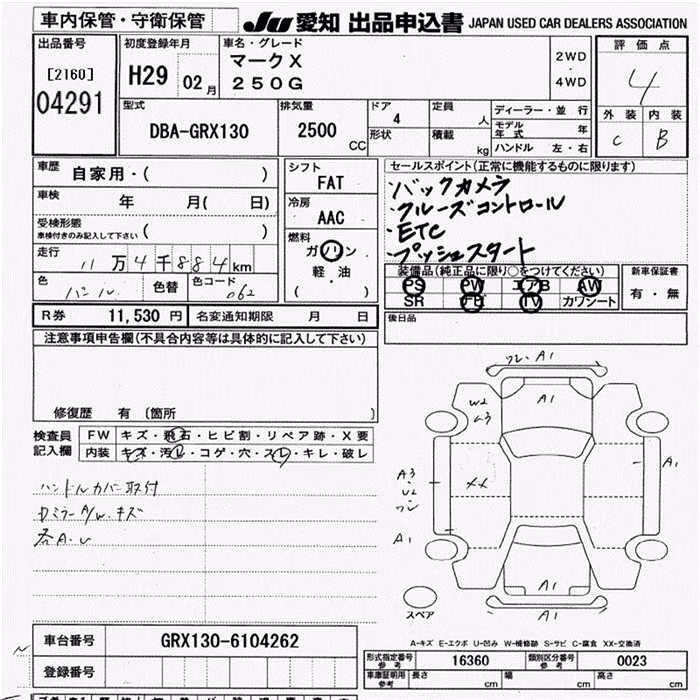 車内保管・守衛保管
JU 愛知 出品申込書 JAPAN USED CAR DEALERS ASSOCIATION
出品番号
[2160]
04291
初度登録年月
H29 02 月
車名・グレード
マークX
250G
2WD
・
4WD
評価点
4
外装 内装
C B
型式
DBA-GRX130
排気量
2500
CC
ドア
4
形状
定員
人
積載
kg
ディーラー・並行
モデル年式 年
ハンドル 左・右
車歴
自家用・( )
車検
年 月( 日)
受検形態
車検付きのみ記入して下さい ( )
走行
11万4千884km
色
パール
色替
色コード
062
シフト
FAT
冷房
AAC
燃料
ガソリン
軽・油
( )
セールスポイント(正常に機能するものに限ります)
・バックカメラ
・クルーズコントロール
・ETC
・プッシュスタート
装備品(純正品に限り○をつけてください)
PS PW エアB AW
SR ナビ TV カワシート
新車保証書
有・無
後日品
R券 11,530 円
名変通知期限 月 日
注意事項申告欄(不具合内容等は具体的に記入して下さい)
修復歴 有 〔箇所 〕
検査員記入欄
FW キズ・飛石・ヒビ割・リペア跡・X要
内装 キズ・汚レ・コゲ・穴・スレ・キレ・破レ
ハンドルカバー取付
DミラーA/W キズ
各A.U
ワレ・A1
A1
W2
A3
U2
ワレ
XX
A1
A1
A1
A1
スペア
A-キズ E-エクボ U-凹み W-補修跡 S-サビ C-腐食 XX-交換済
車台番号
GRX130-6104262
登録番号
形式指定番号
参考
16360
類別区分番号
参考
0023
車庫証明用
参考
長さ cm
幅 cm
高さ cm